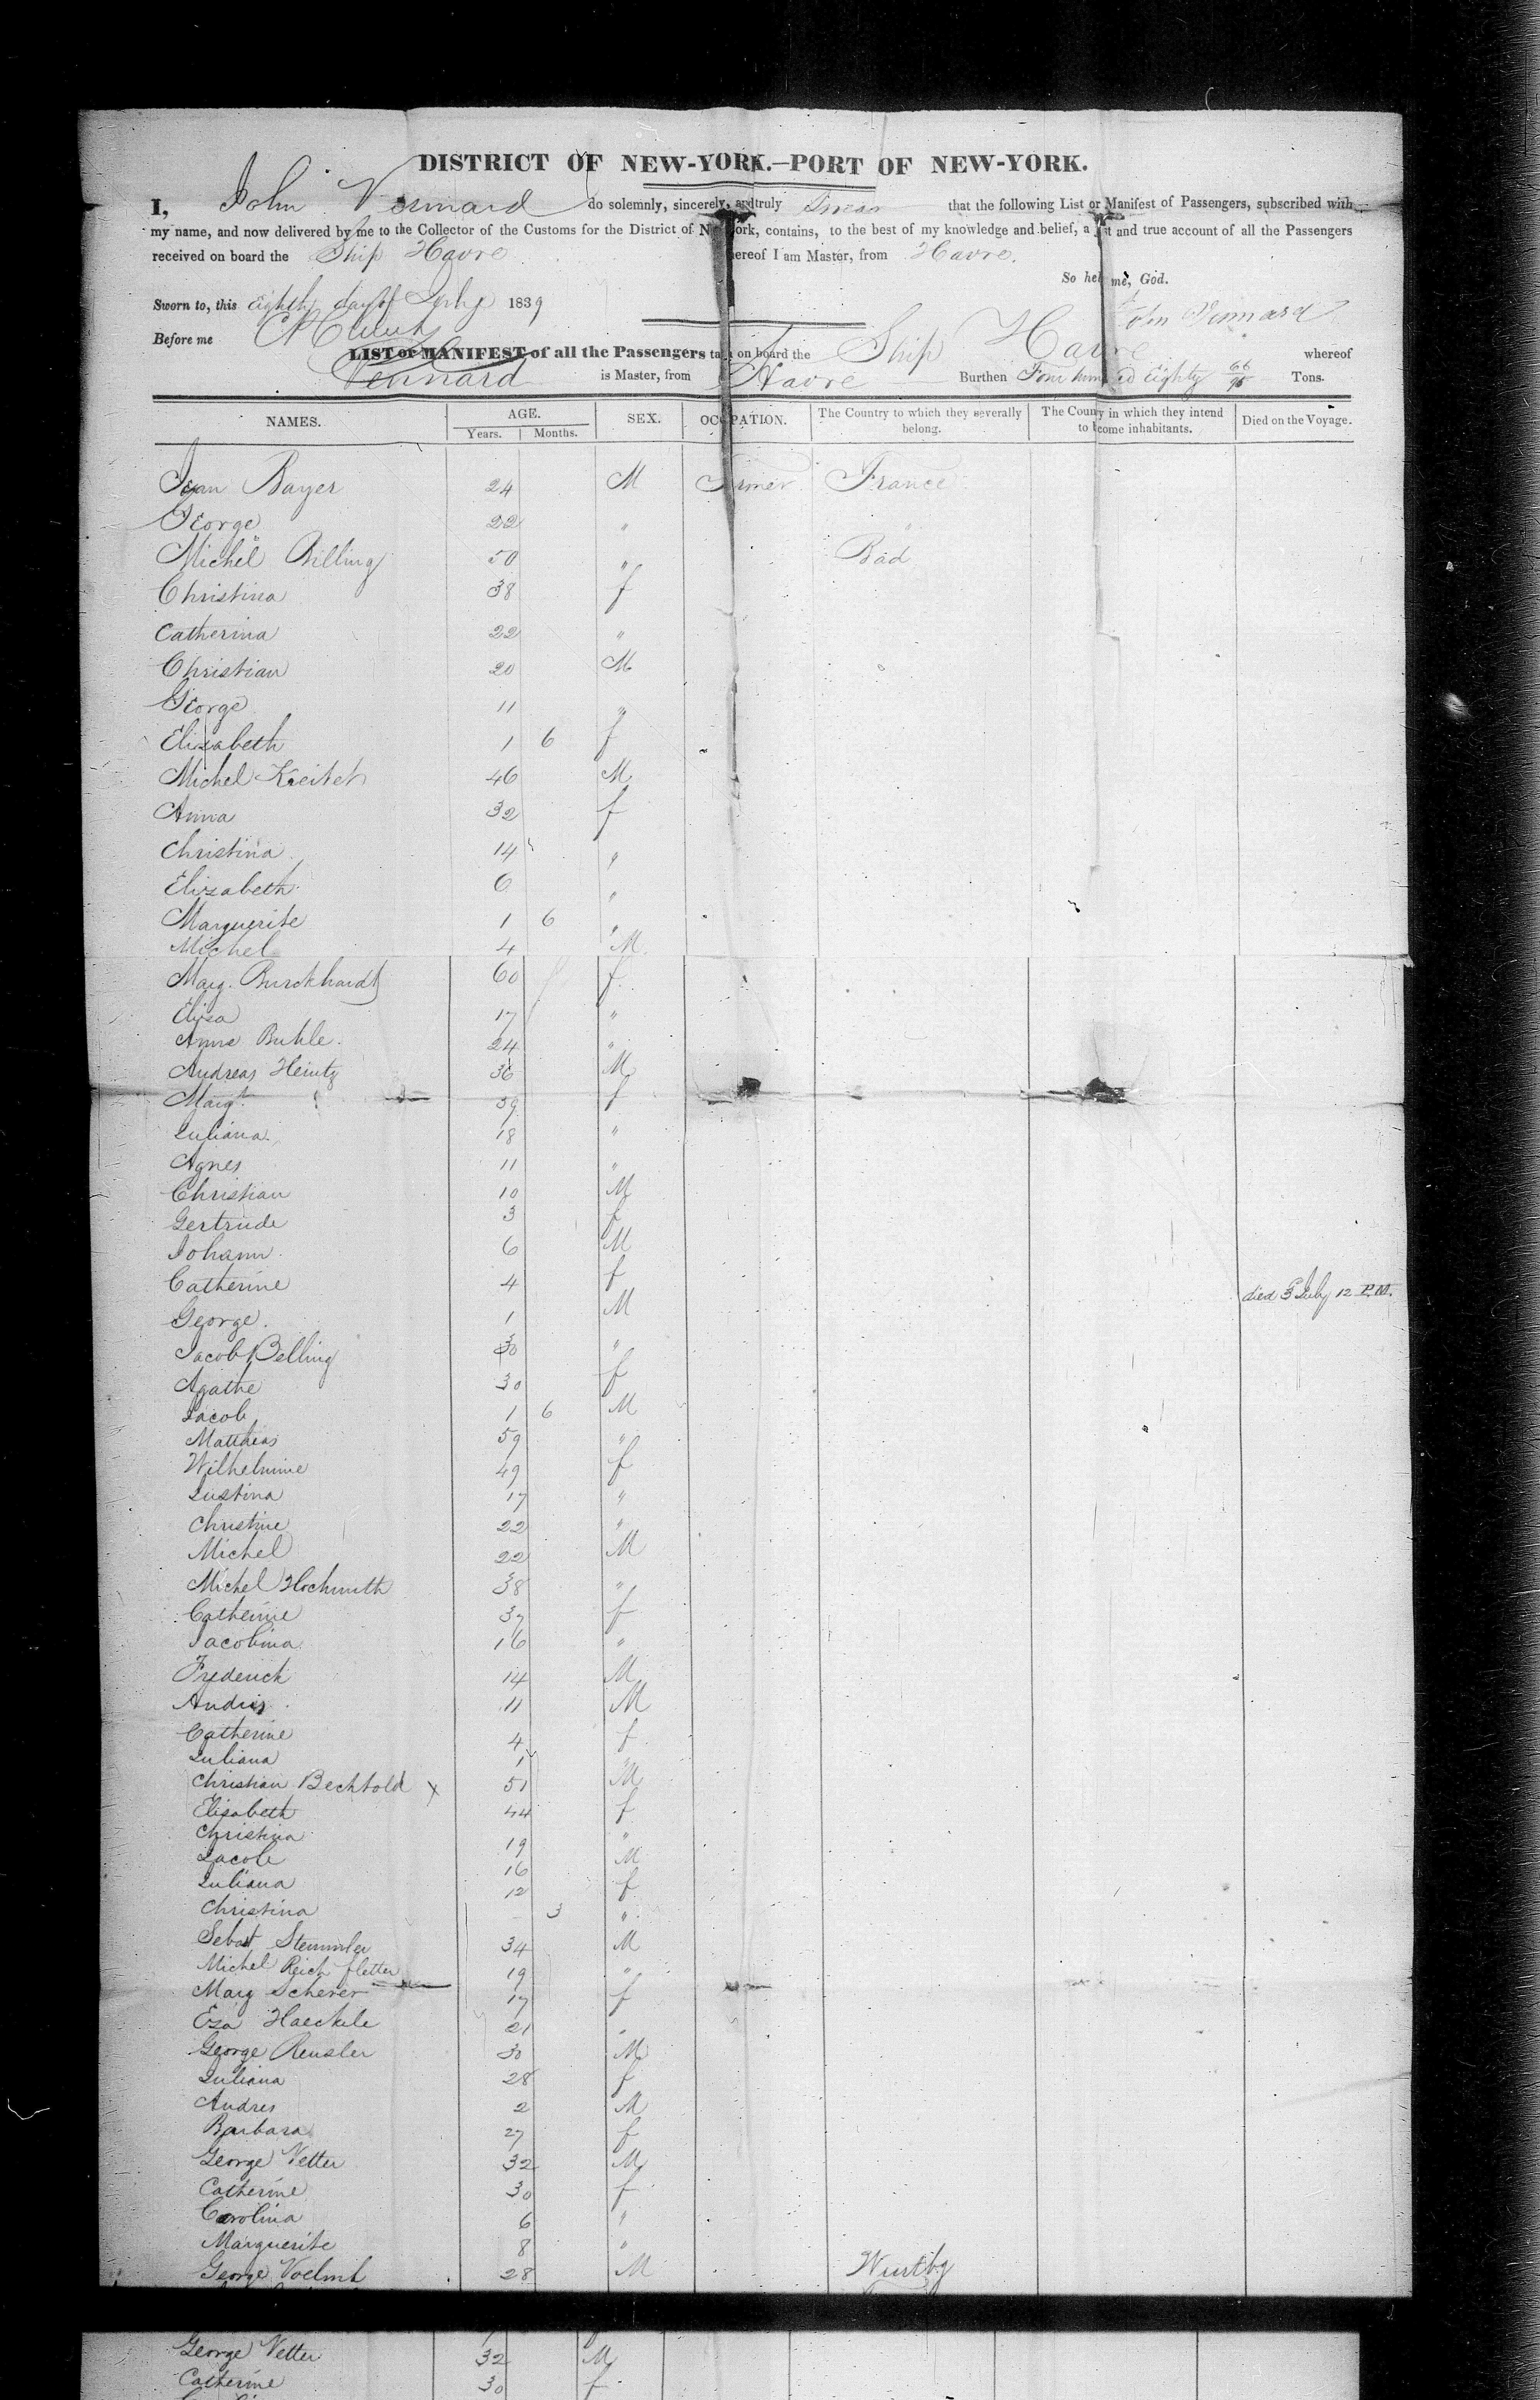 DISTRICT OF NEW-YORK.—PORT OF NEW-YORK.
I, John Vennard do solemnly, sincerely, and truly swear that the following List or Manifest of Passengers, subscribed with
my name, and now delivered by me to the Collector of the Customs for the District of New York, contains, to the best of my knowledge and belief, a just and true account of all the Passengers
received on board the Ship Havre whereof I am Master, from Havre.
So help me, God.
Sworn to, this eighth day of July 1839
John Vennard
Before me
LIST or MANIFEST of all the Passengers taken on board the Ship Havre whereof
Vennard is Master, from Havre Burthen Four hundred eighty 66/95 Tons.
NAMES. AGE. SEX. OCCUPATION. The Country to which they severally belong. The Country in which they intend to become inhabitants. Died on the Voyage.
Years. Months.
Jean Bayer 24 M Farmer France
George " 22 " "
Michel Billing 50 " Bad
Christina 38 f
Catherina 22 "
Christian 20 M
George 11 "
Elizabeth 1 6 f
Michel Kreiter 46 M
Anna 32 f
Christina 14 "
Elizabeth 6 "
Marguerite 1 6 "
Michel 4 M
Marg. Burckhardt 60 f
Elisa 17 "
Anne Buhle 24 "
Andreas Heintz 36 M
Margt. 39 f
Juliana 18 "
Agnes 11 "
Christian 10 M
Gertrude 3 f
Johann 6 M
Catherine 4 f died 3 July 12 P.M.
George 1 M
Jacob Belling 30 "
Agathe 30 f
Jacob 1 6 M
Matthias 59 "
Wilhelmine 49 f
Justina 17 "
Christine 22 "
Michel 22 M
Michel Hochmuth 38 "
Catherine 37 f
Jacobina 16 "
Frederick 14 M
Andris 11 M
Catherine 4 f
Juliana 1 "
Christian Bechtold x 51 M
Elisabeth 44 f
Christina 19 "
Jacob 16 M
Juliana 12 f
Christina 3 "
Sebast Stemmler 34 M
Michel Reich fletter 19 "
Marg Scherer 17 f
Eva Haeckele 21 "
George Rensler 30 M
Juliana 28 f
Andres 2 M
Barbara 27 f
George Vetter 32 M
Catherine 30 f
Carolina 6 "
Marguerite 8 "
George Voelmh 28 M Wurtbg
George Vetter 32 M
Catherine 30 f